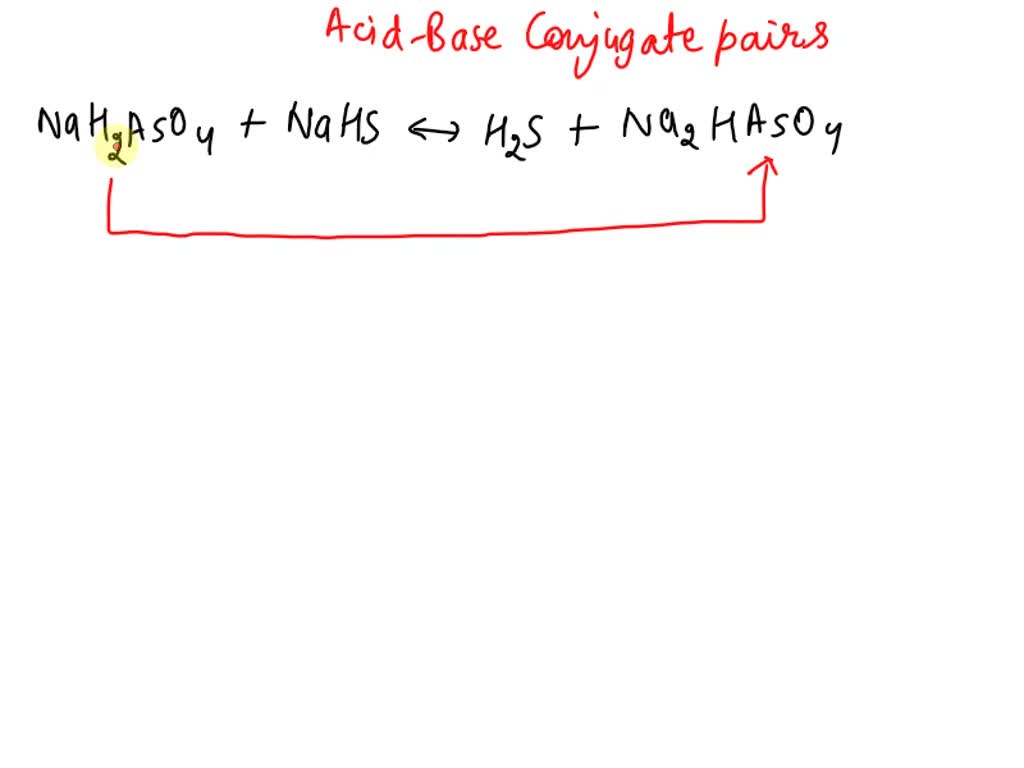 Acid-Base Conjugate pairs
NaH2AsO4 + NaHS ↔ H2S + Na2HAsO4